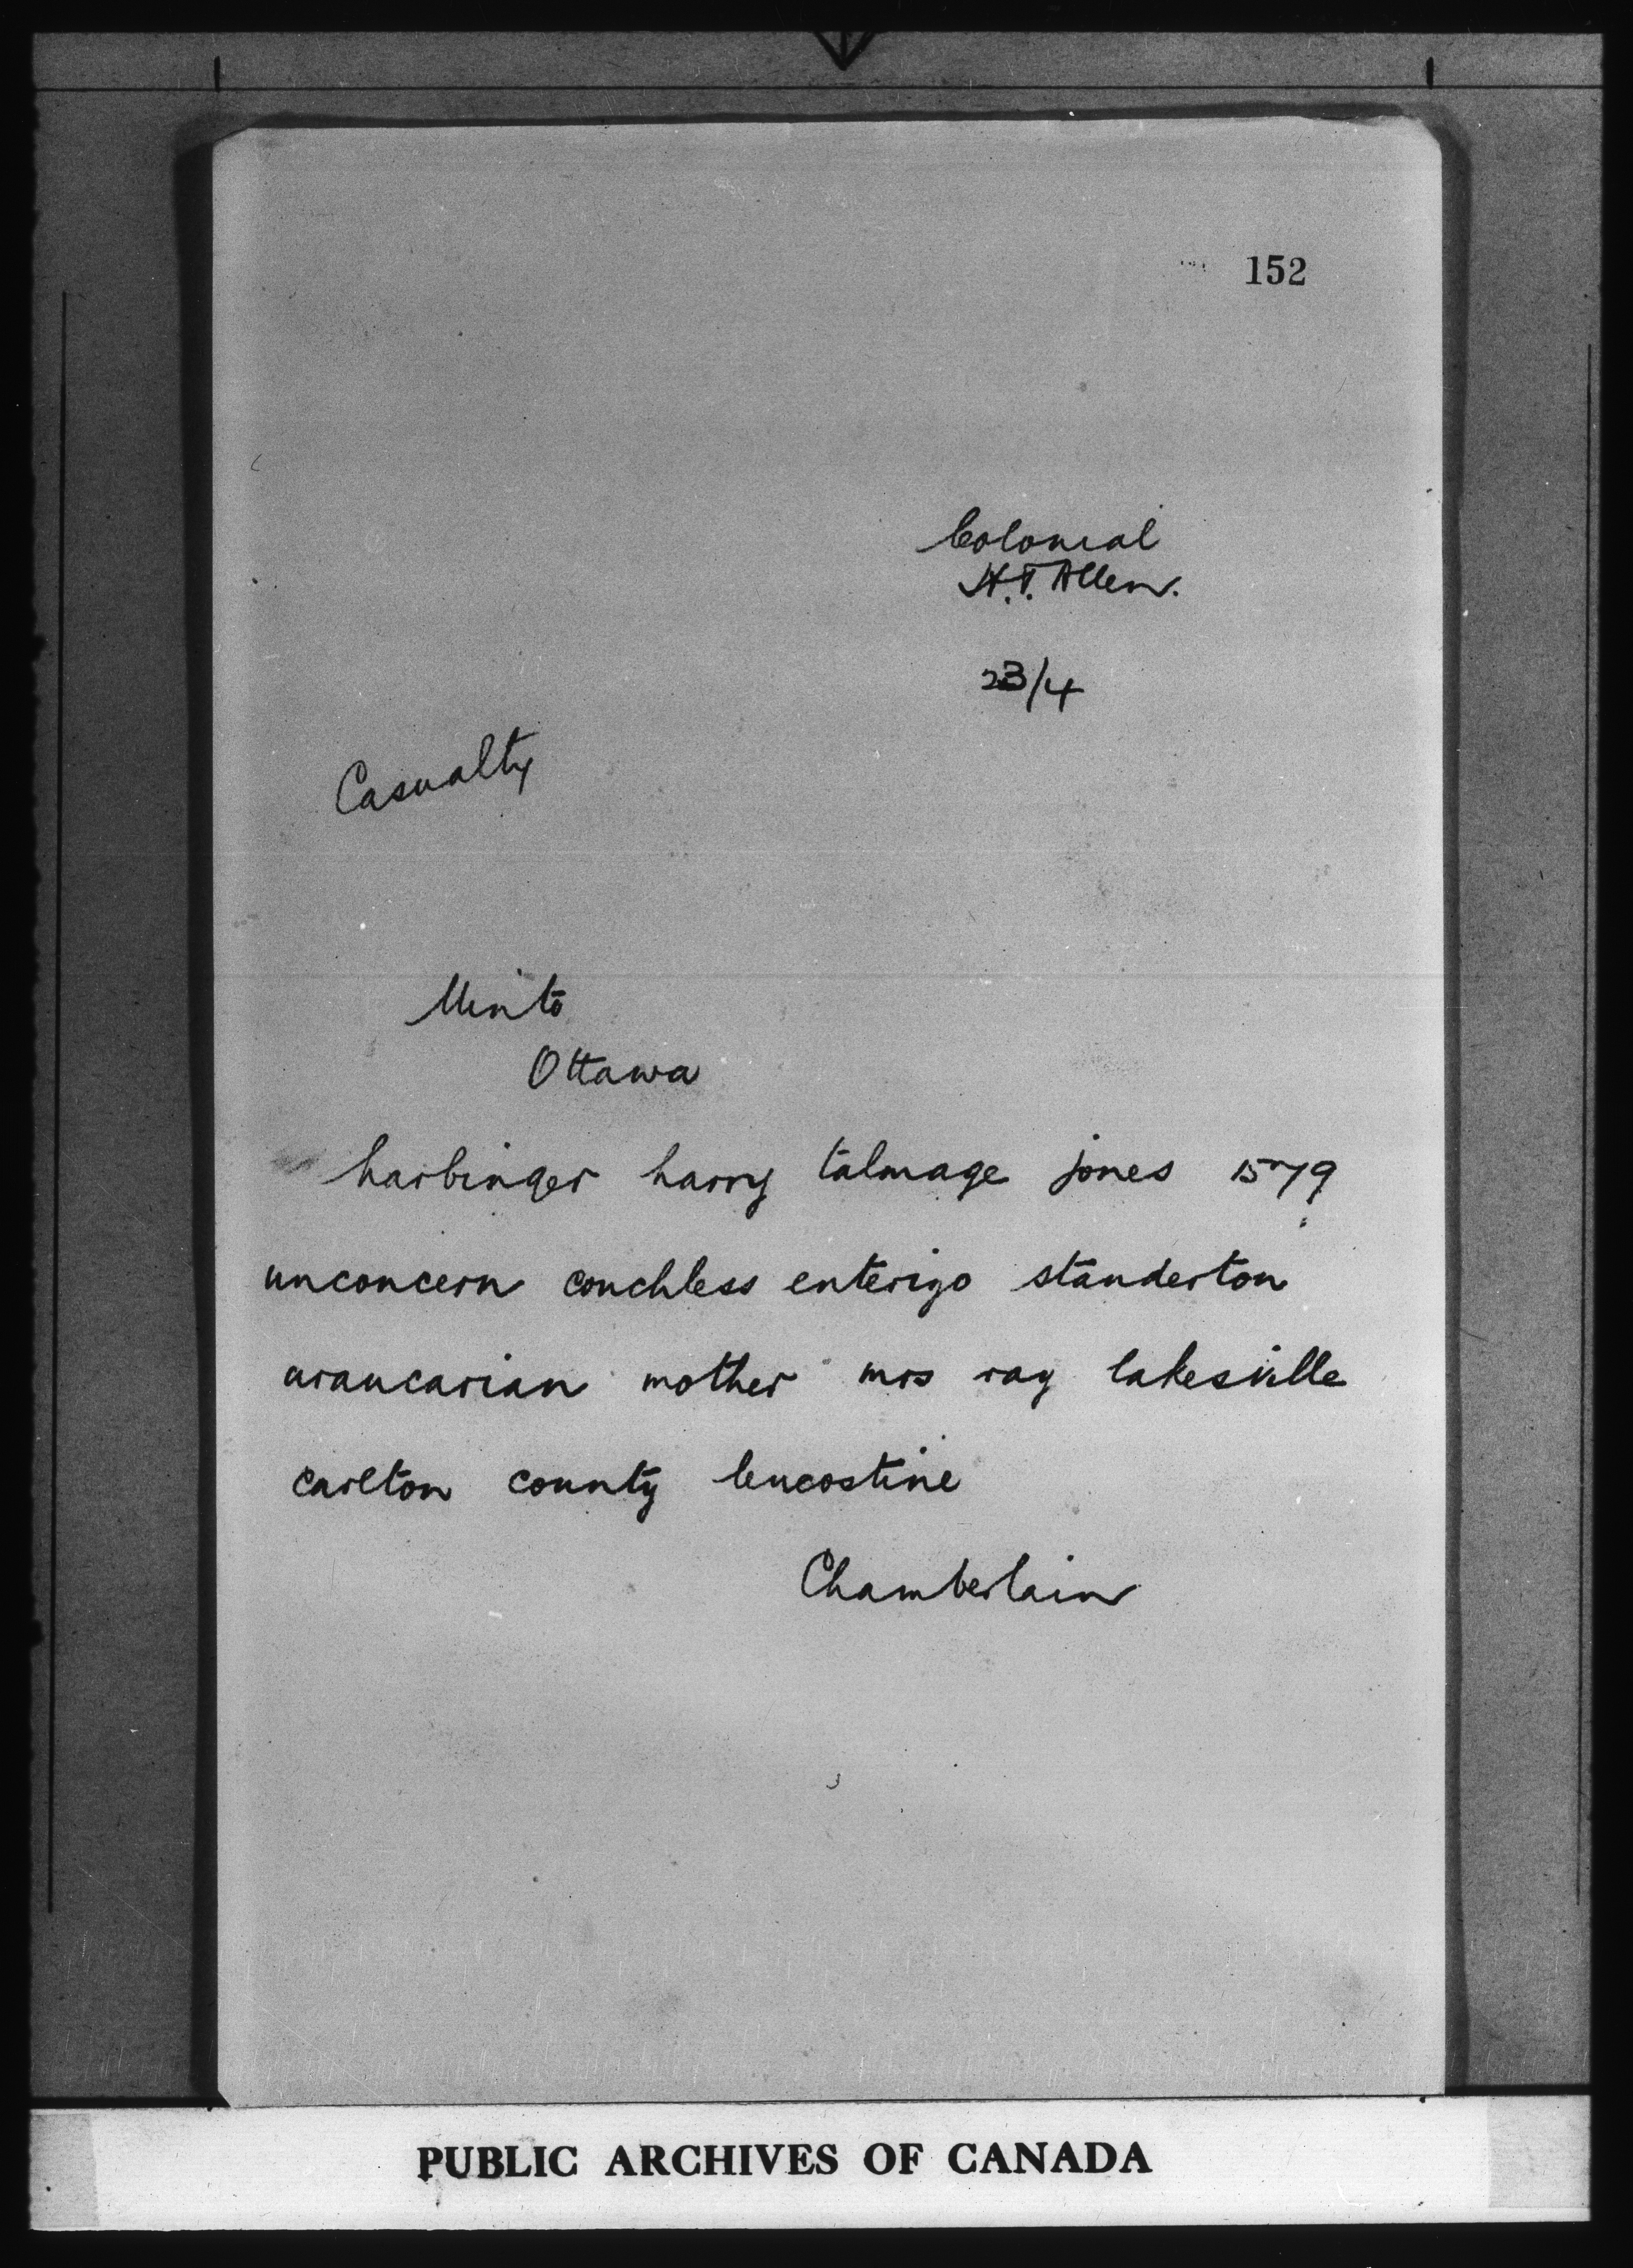 152
Colonial
H.T. Allen.
23/4
Casualty
Minto
Ottawa
harbinger harry talmage jones 1579
unconcern conchless enterigo standerton
araucarian mother mrs ray lakesville
carlton county leucostine
Chamberlain
PUBLIC ARCHIVES OF CANADA